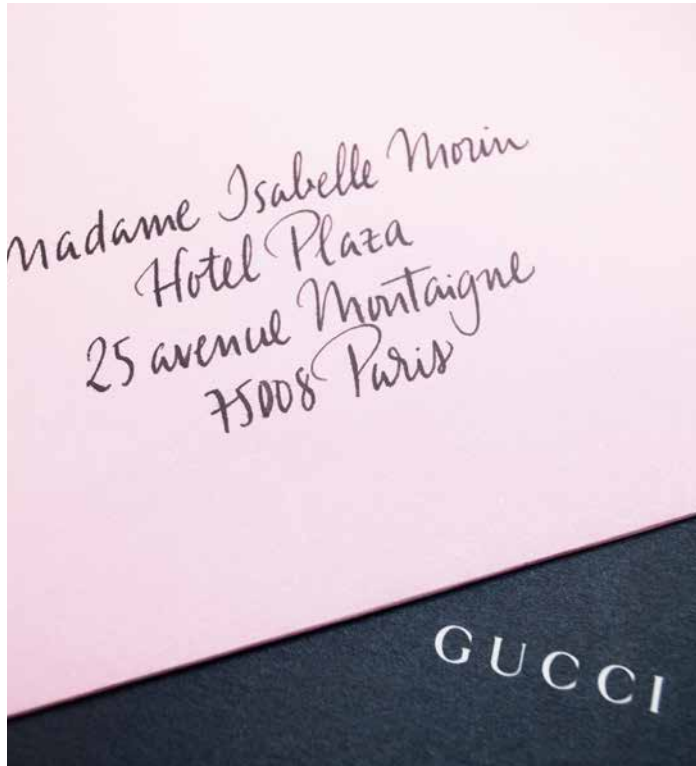 Madame Isabelle Morin
Hotel Plaza
25 avenue Montaigne
75008 Paris
GUCCI